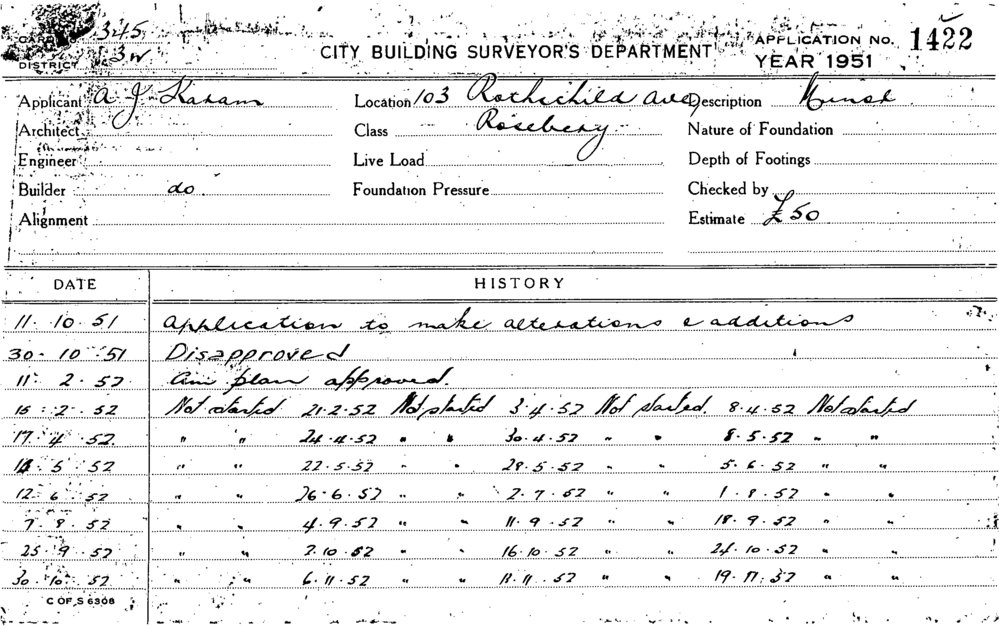 CARD NO. 345
DISTRICT 3W
CITY BUILDING SURVEYOR'S DEPARTMENT
APPLICATION NO. 1422
YEAR 1951
Applicant A J Karam Location 103 Rothschild Ave Description
Architect Class Rosebery Nature of Foundation
Engineer Live Load Depth of Footings
Builder do Foundation Pressure Checked by
Alignment Estimate £50
DATE HISTORY
11. 10. 51 Application to make alterations & additions
30. 10. 51 Disapproved
11. 2. 52 Am plan approved.
15. 2. 52 Not started 21.2.52 Not started 3.4.52 Not started. 8.4.52 Not started
17. 4. 52 " " 24.4.52 " " 30.4.52 " " 8.5.52 " "
5. 52 " " 22.5.52 " " 28.5.52 " " 5.6.52 " "
12. 6. 52 " " 26.6.52 " " 2.7.52 " " 1.8.52 " "
7. 8. 52 " " 4.9.52 " " 11.9.52 " " 18.9.52 " "
25. 9. 52 " " 2.10.52 " " 16.10.52 " " 24.10.52 " "
30. 10. 52 " " 6.11.52 " " 11.52 " " 19.11.52 " "
C OF S 6308